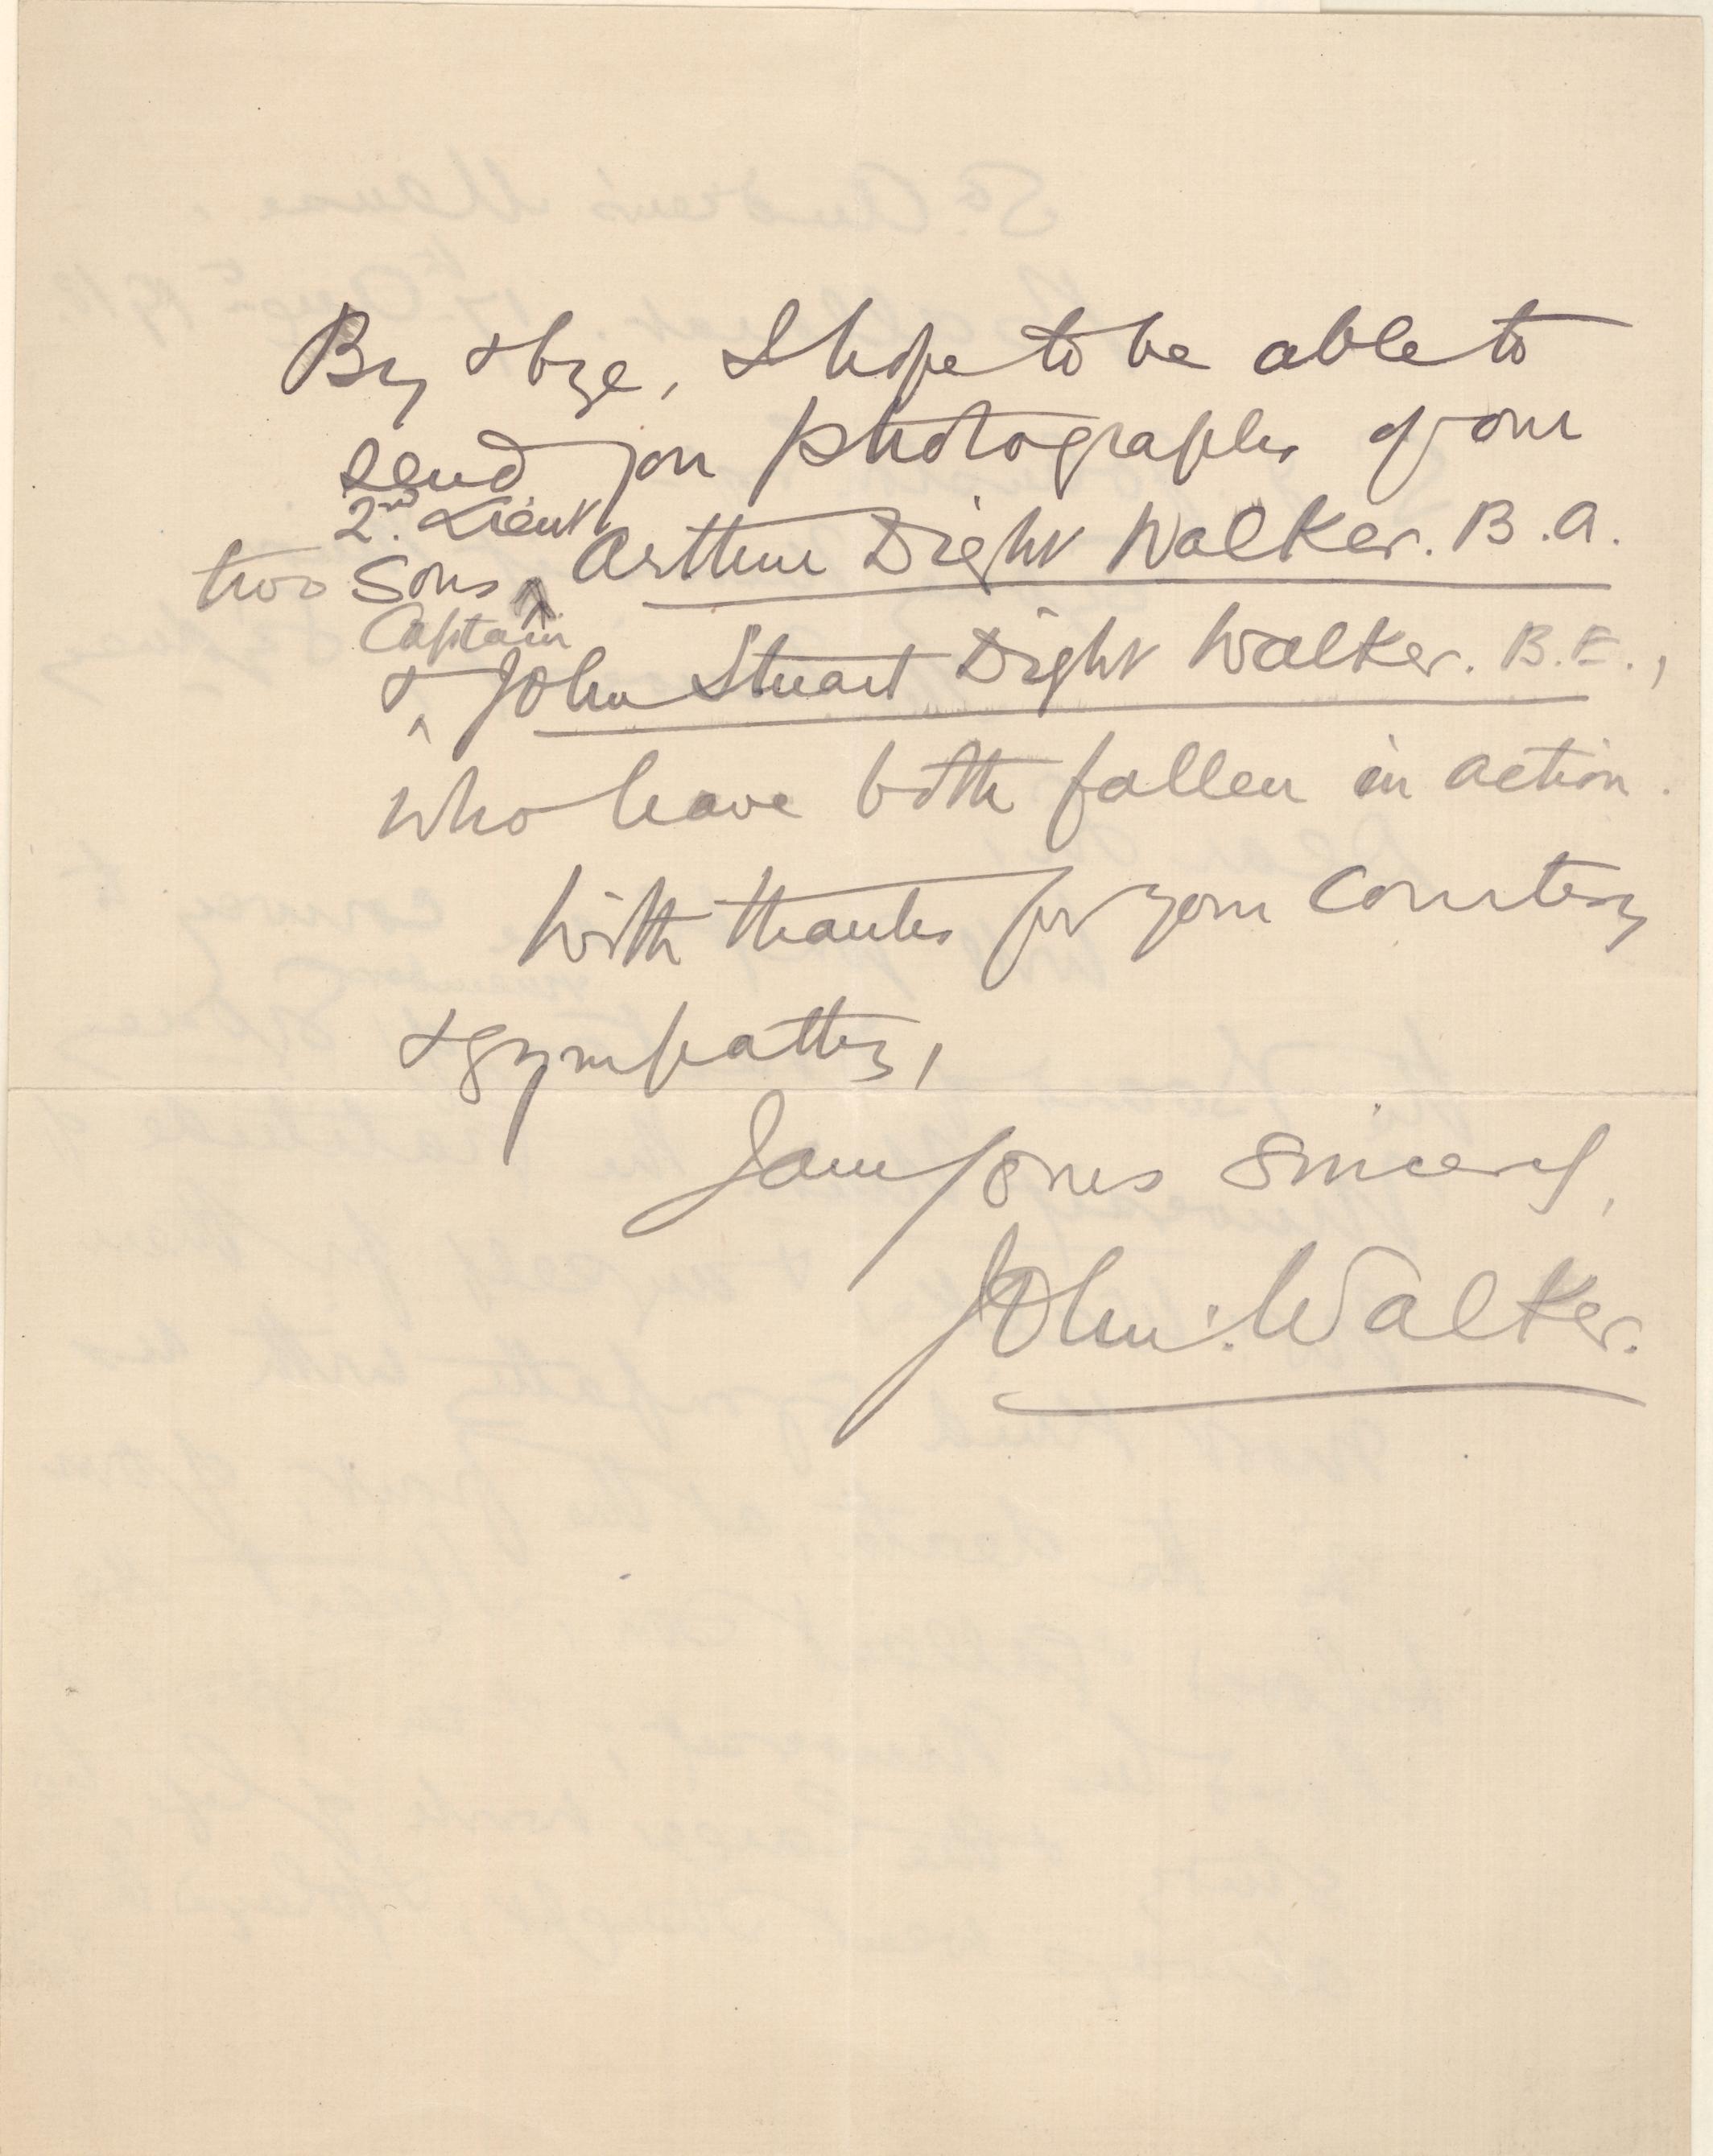 By & bye, I hope to be able to
send you photographs of our
2nd. Lieut
two Sons ^ Arthur Dight Walker. B.A.
Captain
& ^ John Stuart Dight Walker. B.E.,
who have both fallen in action.
With thanks for your Courtesy
& sympathy,
I am Yours Sincerely,
John Walker.